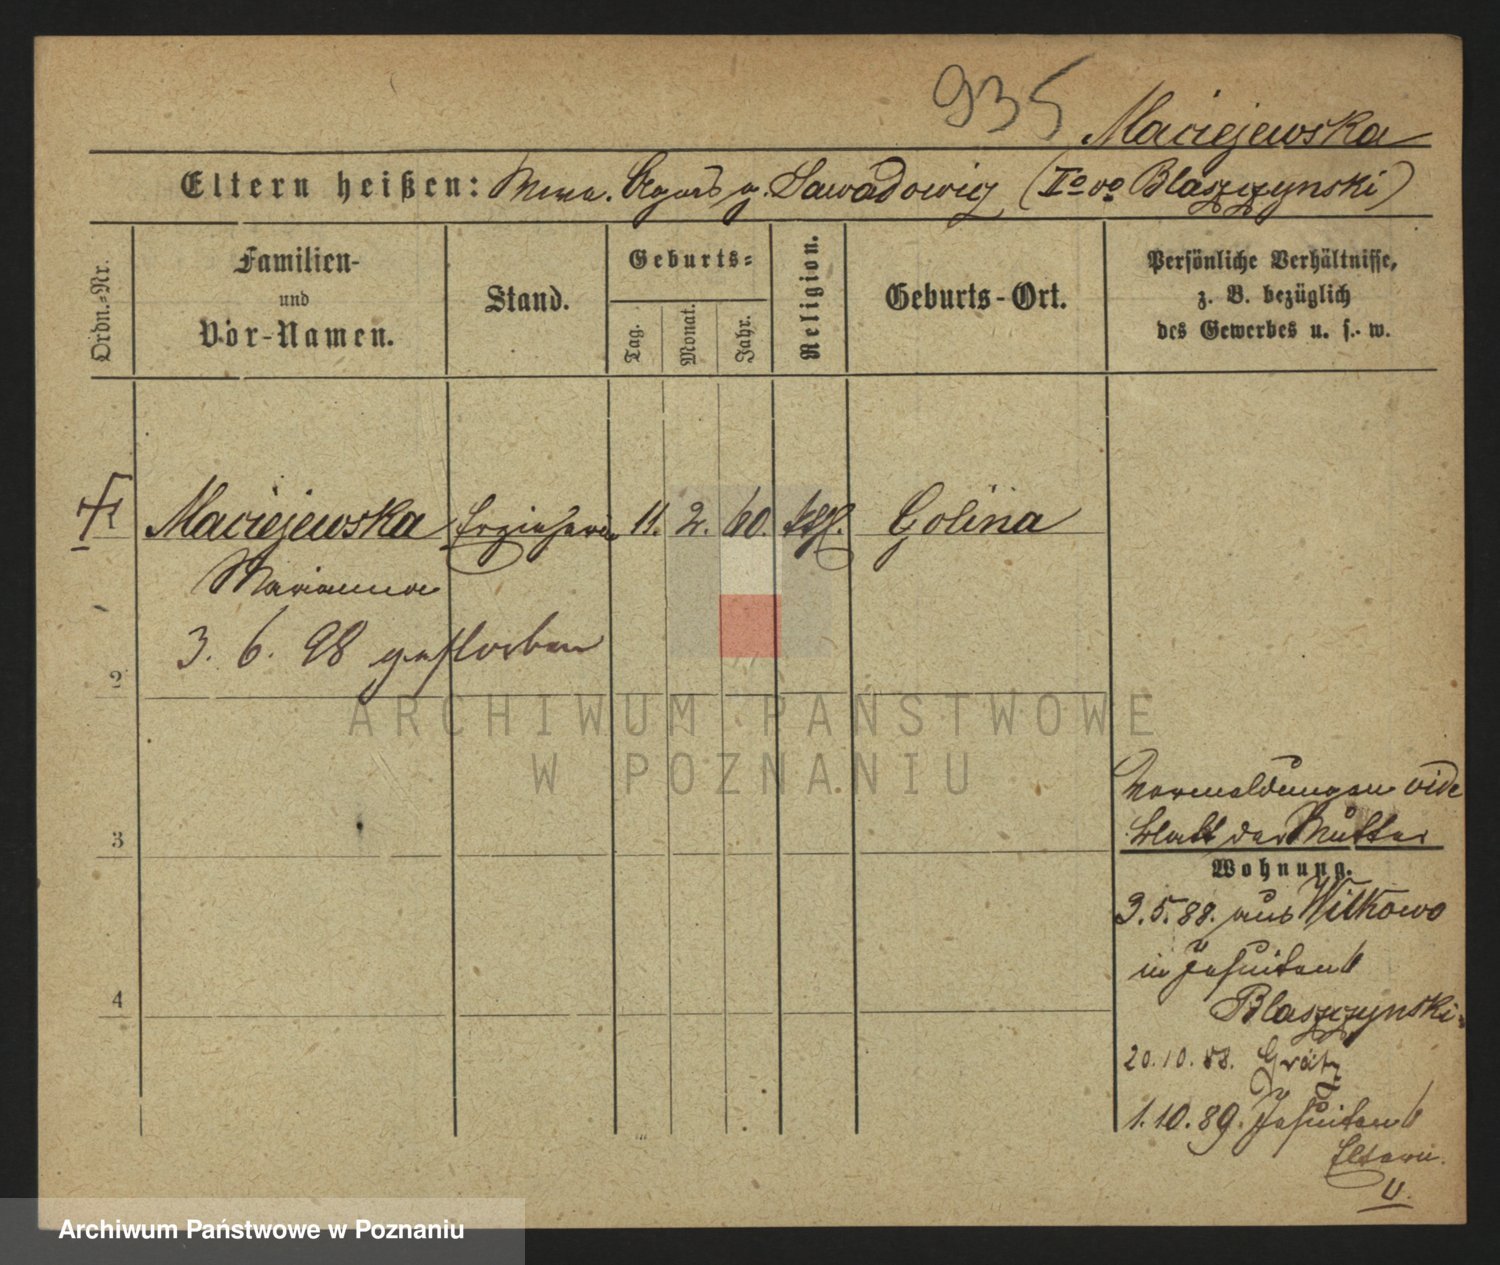 935
Maciejewska
Eltern heißen: Agnes g. Zawadowicz (Io vo Blaszczynski)
Ordn.-Nr.
Familien-
und
Vor-Namen.
Stand.
Geburts-
Tag.
Monat.
Jahr.
Religion.
Geburts-Ort.
Persönliche Verhältnisse,
z. B. bezüglich
des Gewerbes u. s. w.
1 Maciejewska Erzieherin 11. 2. 60. kath. Golina
Marianna
3. 6. 98 gestorben
2
3
4
Vormeldungen vide
Blatt der Mutter
Wohnung.
3.5.88. aus Witkowo
in Jesuitenst 6
Blaszczynski.
20.10.88. Grätz
1.10.89. Jesuitenst 6
Eltern.
U.
ARCHIWUM PAŃSTWOWE
W POZNANIU
Archiwum Państwowe w Poznaniu